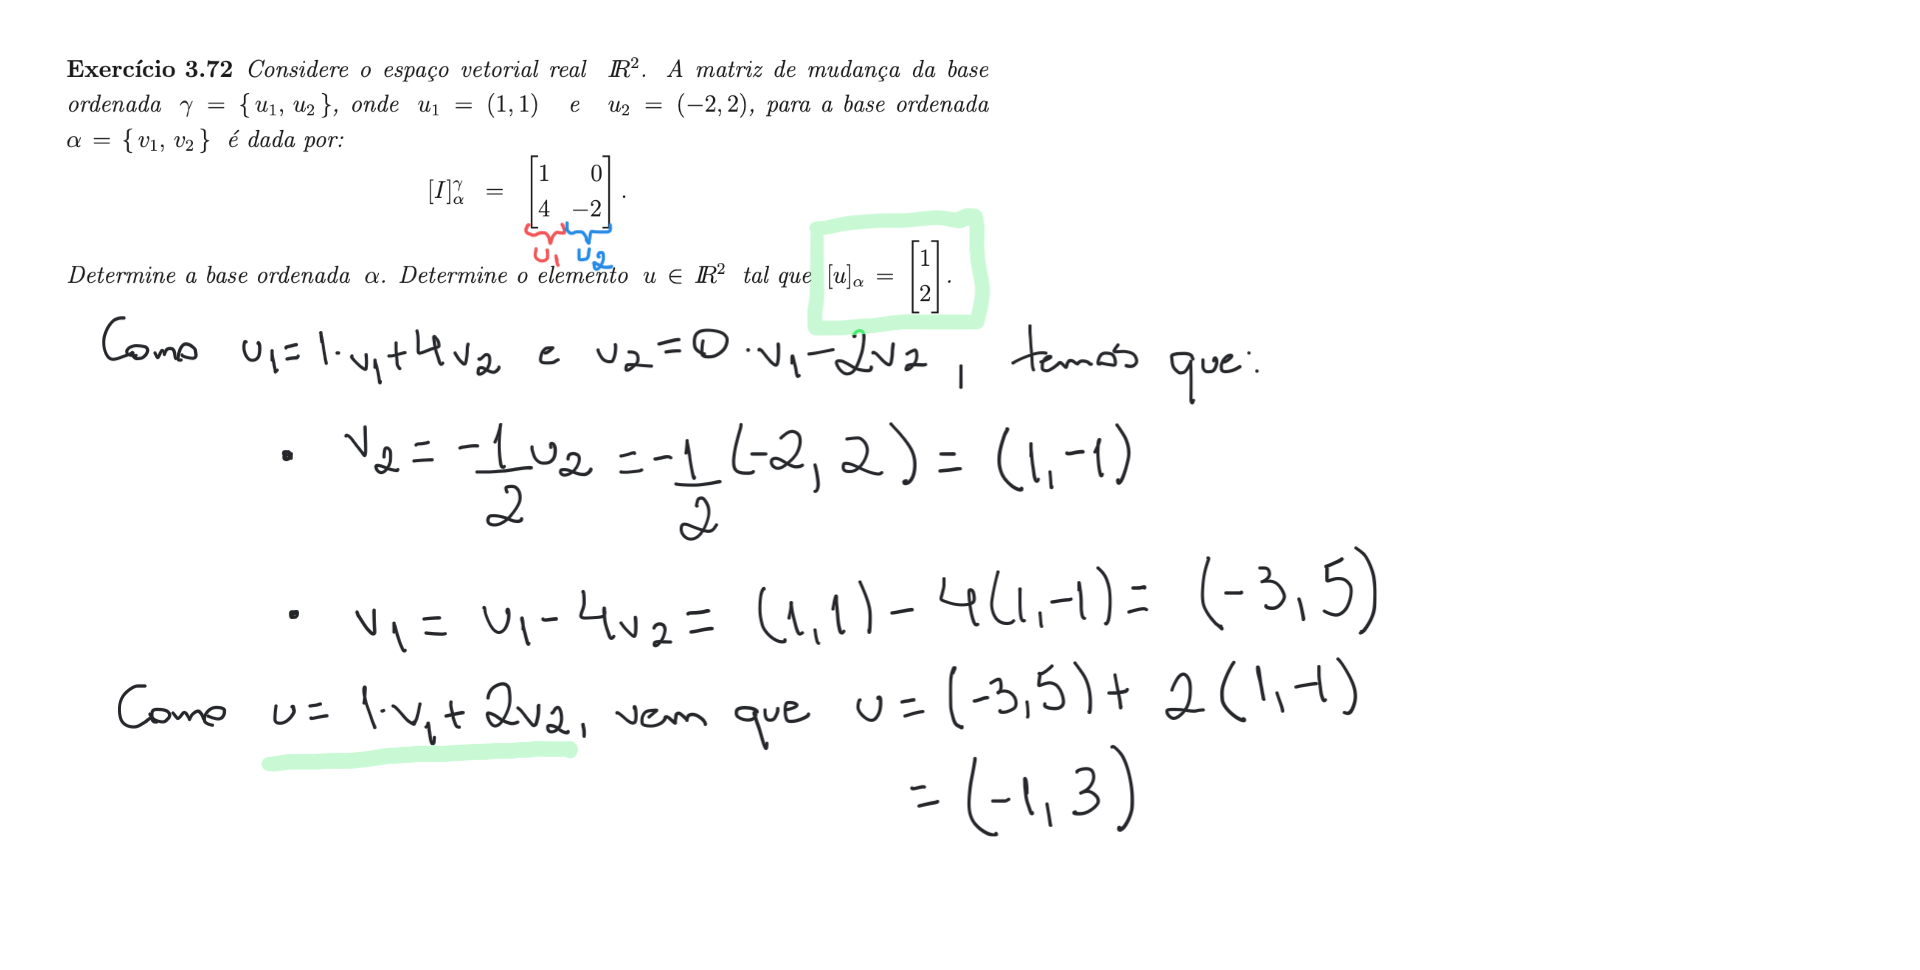 Exercício 3.72 Considere o espaço vetorial real ℝ². A matriz de mudança da base
ordenada γ = {u₁, u₂}, onde u₁ = (1, 1) e u₂ = (−2, 2), para a base ordenada
α = {v₁, v₂} é dada por:
[I]^γ_α = [1 0; 4 −2].
u₁ u₂
Determine a base ordenada α. Determine o elemento u ∈ ℝ² tal que [u]_α = [1; 2].
Como u₁ = 1·v₁ + 4v₂ e u₂ = 0·v₁ − 2v₂, temos que:
• v₂ = −1/2 u₂ = −1/2 (−2, 2) = (1, −1)
• v₁ = u₁ − 4v₂ = (1, 1) − 4(1, −1) = (−3, 5)
Como u = 1·v₁ + 2v₂, vem que u = (−3, 5) + 2(1, −1)
= (−1, 3)